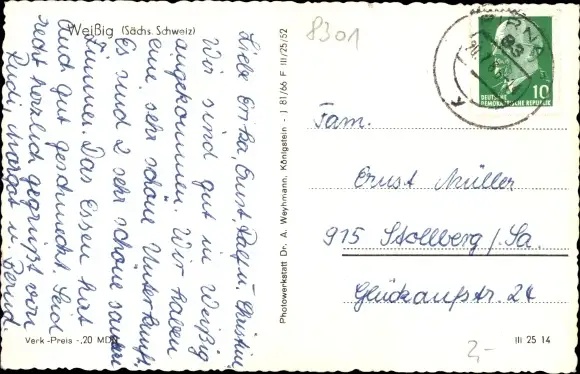 Weißig (Sächs. Schweiz)
8301
Liebe Erika, Ernst, Ralf u. Christine,
Wir sind gut in Weißig
angekommen. Wir haben
eine sehr schöne Unterkunft,
Es sind 2 sehr schöne saubere
Zimmer. Das Essen hat
auch gut geschmeckt. Seid
recht herzlich gegrüßt von
Rudi, Margot u. Bernd.
Verk.-Preis -,20 MDN
Photowerkstatt Dr. A. Weyhmann, Königstein - J 81/66 F III/25/52
PIRNA
83
10
DEUTSCHE
DEMOKRATISCHE REPUBLIK
Fam.
Ernst Müller
915 Stollberg/Sa.
Glückaufstr. 24
III 25 14
2,-